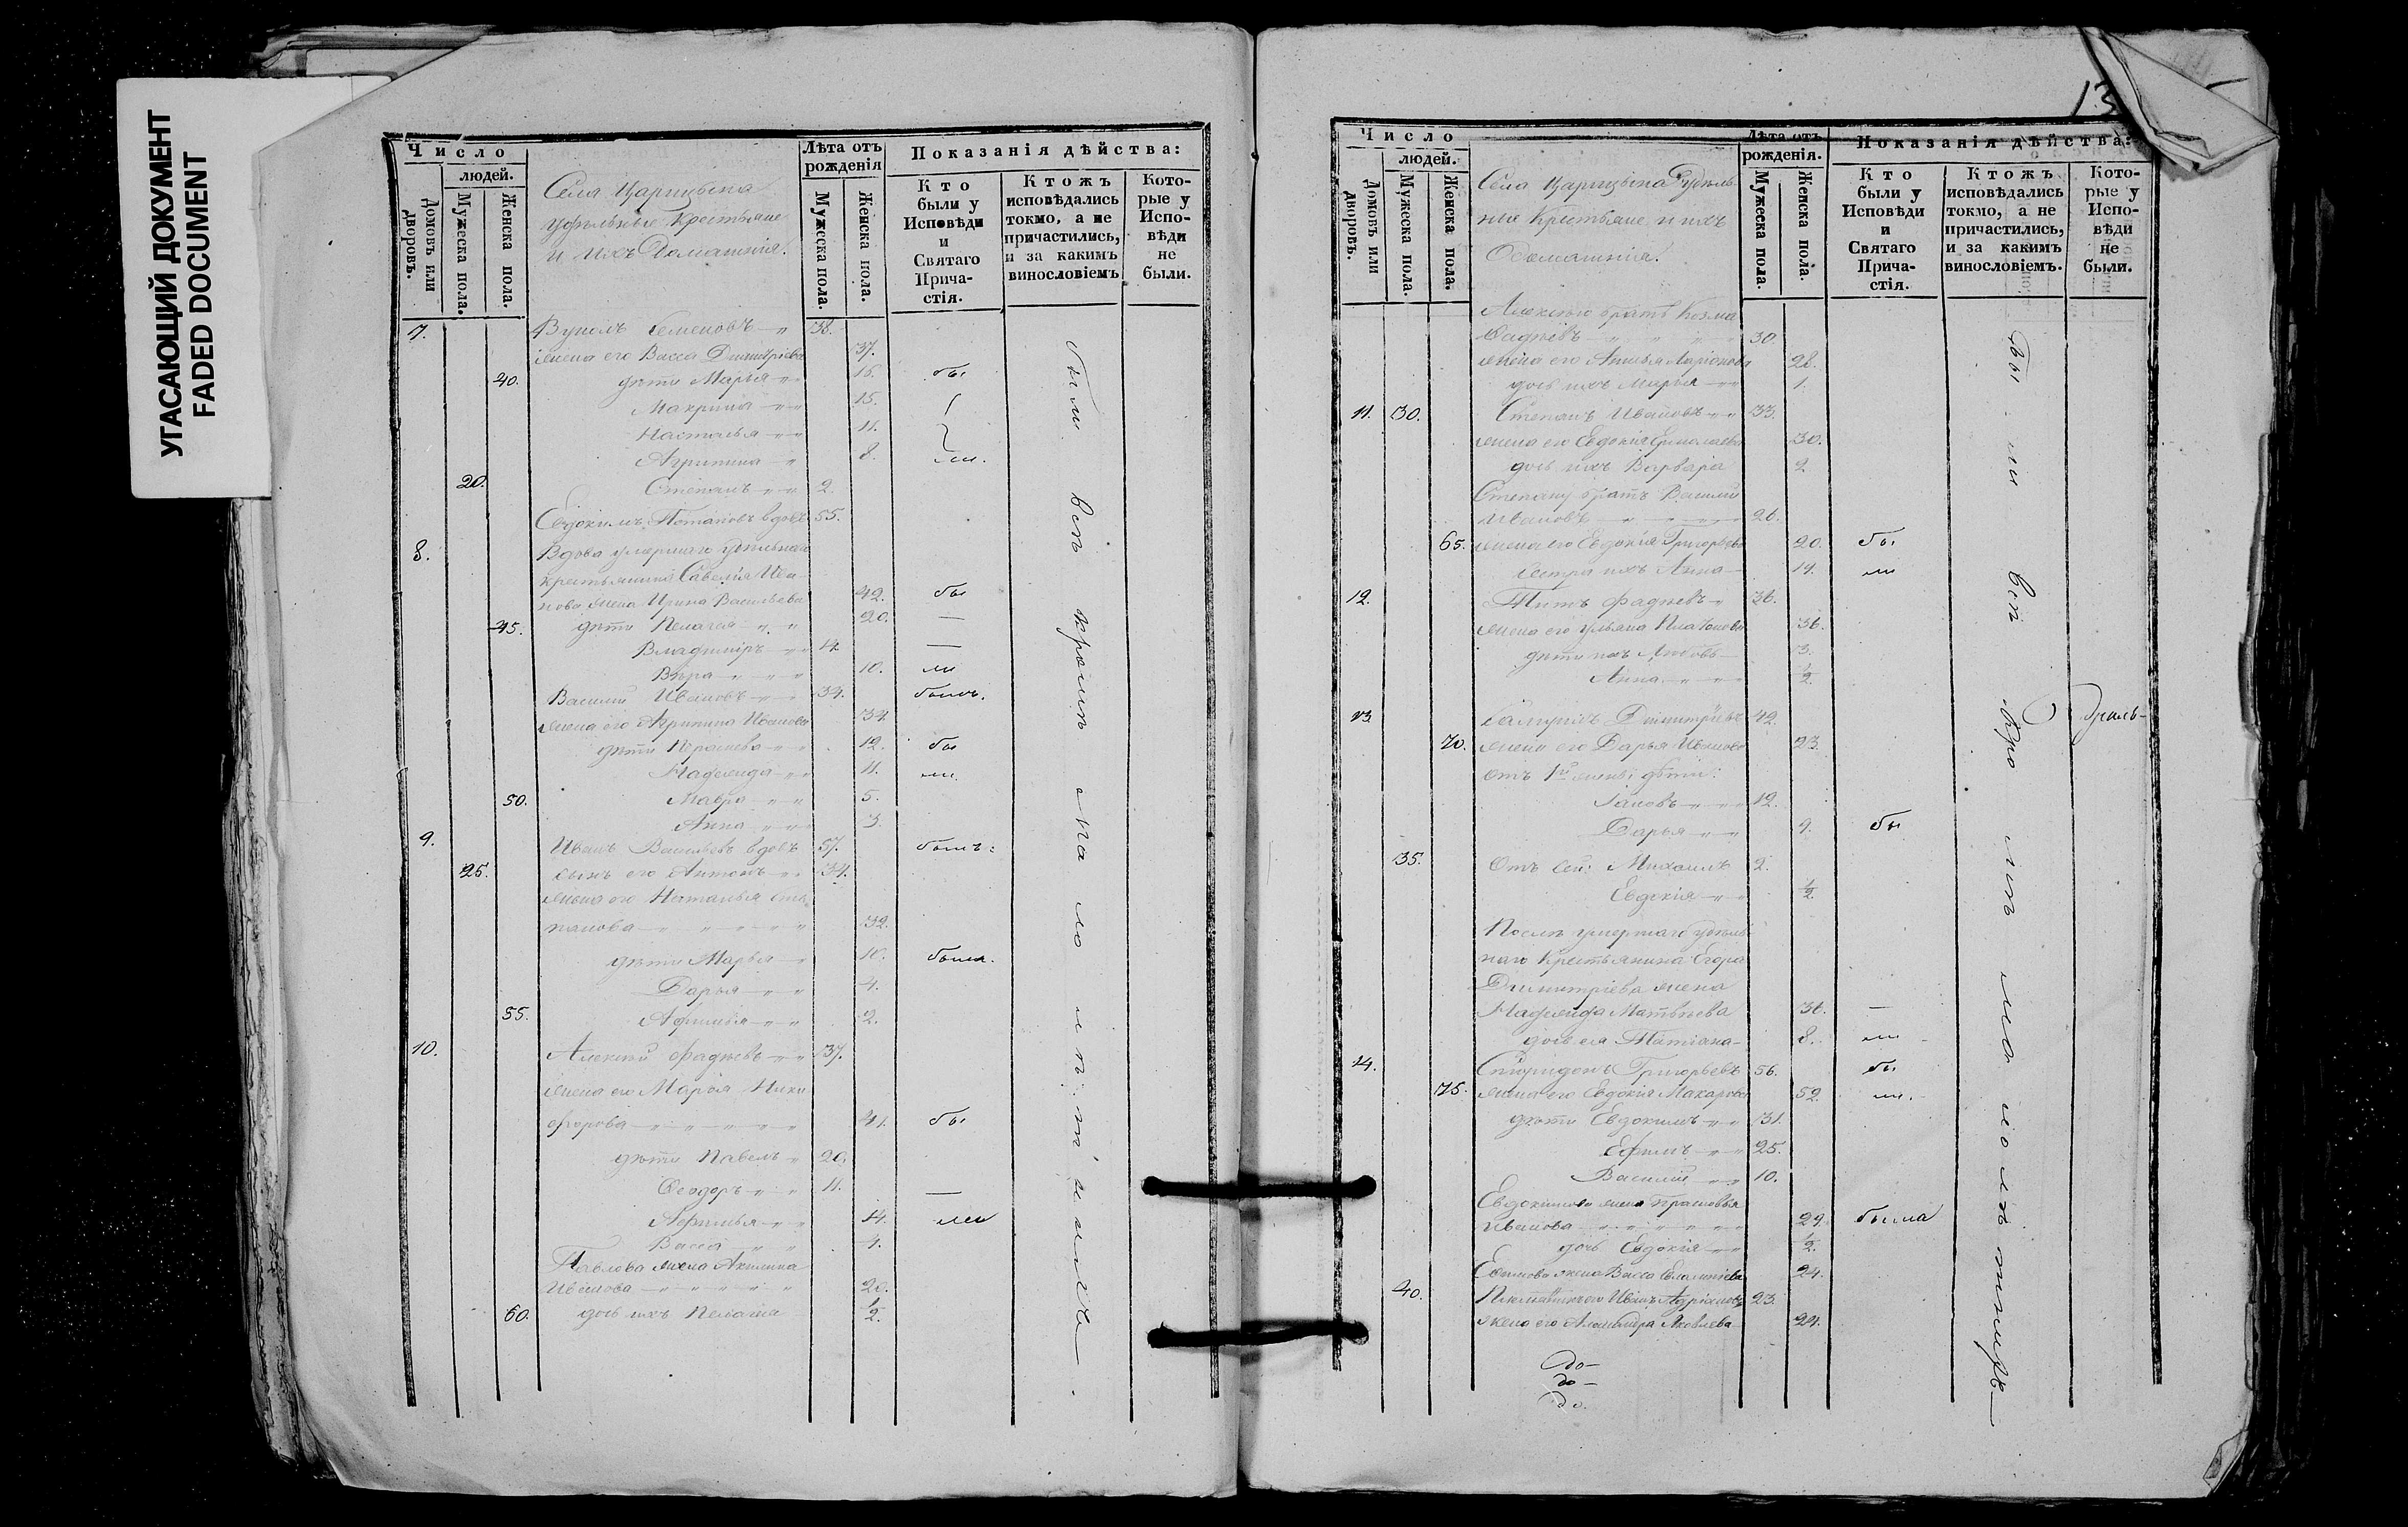 УГАСАЮЩИЙ ДОКУМЕНТ
FADED DOCUMENT
Число
людей.
Домовъ или дворовъ.
Мужеска пола.
Женска пола.
Села Царицына
удѣльные Крестьяне
и ихъ Домашнія.
Лѣта отъ рожденія
Мужеска пола.
Женска пола.
Показанія дѣйства:
Кто были у Исповѣди и Святаго Прича-стія.
Ктожъ исповѣдались токмо, а не причастились, и за какимъ винословіемъ
Кото-рые у Испо-вѣди не были.
7. Вуколъ Семеновъ 38.
жена его Васса Димитріева 37.
40. дѣти Марья 16. бы
Макрина 15.
Наталья 11.
Агрипина 8. ли.
20. Степанъ 2.
Евдокимъ Потаповъ вдовъ 55.
8. Вдова умершаго удѣльнаго
крестьянина Савелія Ива-
нова жена Ирина Васильева 42. бы
45. дѣти Пелагея 20. —
Владиміръ 14. —
Вѣра 10. ли
Василій Ивановъ 34. былъ.
жена его Агрипина Иванова 34.
дѣти 12. бы
Надежда 11. ли
50. Мавра 5.
Анна 3.
9. Иванъ Васильевъ вдовъ 57. былъ:
25. сынъ его Антонъ 34.
жена его Наталья Сте-
панова 32.
дѣти Марья 10. была.
Дарья 4.
55. Афимья 2.
10. Алексѣй Фадѣевъ 37.
жена его Марѳа Ники-
форова 41. бы
дѣти Павелъ 20.
Ѳеодоръ 11. —
Афимья 14. ли
Васса 4.
Павлова жена Акилина
Иванова 20.
60. дочь ихъ Пелагія 1/2.
были всѣ кромѣ малолѣтныхъ.
13
Число
людей.
Домовъ или дворовъ.
Мужеска пола.
Женска пола.
Села Царицына удѣль-
ные Крестьяне и ихъ
Домашнія.
Лѣта отъ рожденія.
Мужеска пола.
Женска пола.
Показанія дѣйства:
Кто были у Исповѣди и Святаго Прича-стія.
Ктожъ исповѣдались токмо, а не причастились, и за какимъ винословіемъ.
Кото-рые у Испо-вѣди не были.
Алексѣю братъ Козма
Фадѣевъ 30.
жена его Ларіонова 28.
дочь ихъ Марья 1.
11. 30. Степанъ Ивановъ 33.
жена его Евдокія Ермолаева 30.
дочь ихъ Варвара 2
Степану братъ Василій
Ивановъ 26.
65. жена его Евдокія Григорьева 20. бы
сестра ихъ Анна 14. ли
12. Титъ Фадѣевъ 36.
жена его Ульяна 36.
дѣти ихъ Любовь 3.
Анна 1/2.
13. Самуилъ Димитріевъ 42.
70. жена его Дарья Иванова 23.
отъ 1й жены дѣти:
Іаковъ 12.
Дарья 9. бы
35. Отъ сей: Михаилъ 2.
Евдокія 1/2.
Послѣ умершаго удѣль-
наго Крестьянина Егора
Димитріева жена
Надежда Матвѣева 36. —
дочь ея Татіана 8. ли
14. Спиридонъ Григорьевъ 56. бы
75. жена его Евдокія Макарова 52. ли.
дѣти Евдокимъ 31.
Ефимъ 25.
Василій 10.
Евдокимова жена Прасковья
Иванова 29. была
дочь Евдокія 1/2.
Ефимова жена Васса 24.
40. Племянникъ его Иванъ 23.
жена его Александра Яковлева 24.